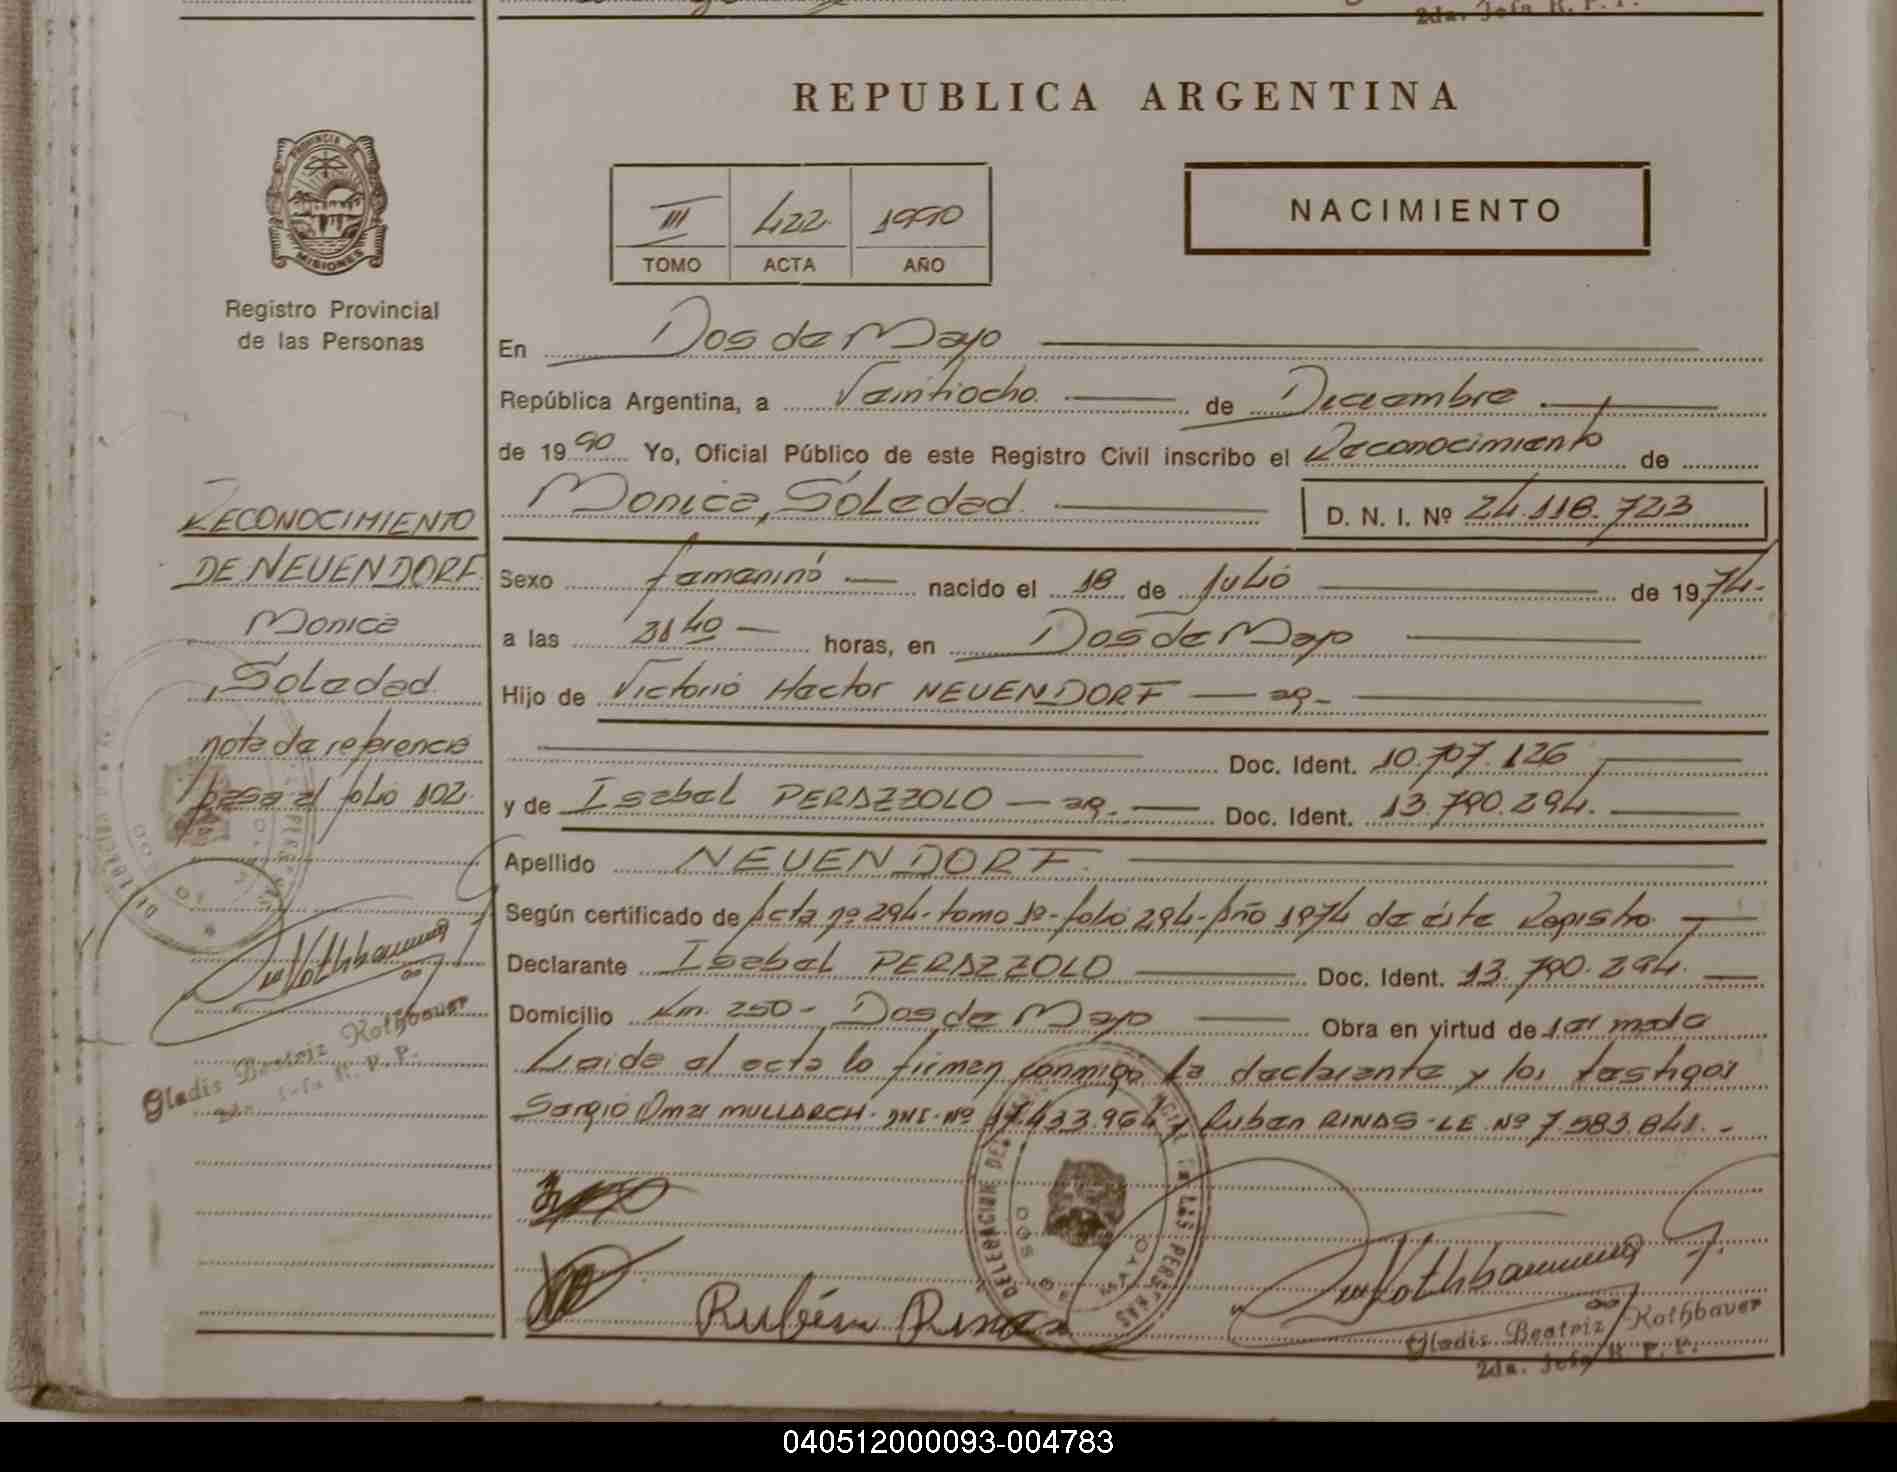 2da. Jefa R. P. P.
REPUBLICA ARGENTINA
PROVINCIA DE
MISIONES
Registro Provincial
de las Personas
III 422 1990
TOMO ACTA AÑO
NACIMIENTO
En Dos de Mayo
República Argentina, a Veintiocho de Diciembre
de 1990 Yo, Oficial Público de este Registro Civil inscribo el Reconocimiento de
Monica, Soledad D. N. I. Nº 24.118.723
RECONOCIMIENTO
DE NEUENDORF
Monica
Soledad
nota de referencia
pasa al folio 102
Gladis Beatriz Rothbauer
2da. Jefa R. P. P.
Sexo femenino nacido el 18 de Julio de 1974.
a las 21 40 horas, en Dos de Mayo
Hijo de Victorio Hector NEUENDORF - ag -
Doc. Ident. 10.707.126
y de Isabel PERAZZOLO - ag. - Doc. Ident. 13.790.294.
Apellido NEUENDORF.
Según certificado de Acta nº 294 - tomo 1º - folio 294 - Año 1974 de éste Registro.
Declarante Isabel PERAZZOLO Doc. Ident. 13.790.294.
Domicilio Km. 250 - Dos de Mayo Obra en virtud de ser madre
Leida el acta lo firman conmigo la declarante y los testigos
Sergio Omar MULLARCH - DNI - Nº 17.433.964 y Ruben RINAS - LE Nº 7.583.841. -
DELEGACION DEL
DE LAS PERSONAS
DOS DE MAYO
Rubén Rinas
Gladis Beatriz Rothbauer
2da. Jefa R. P. P.
040512000093-004783